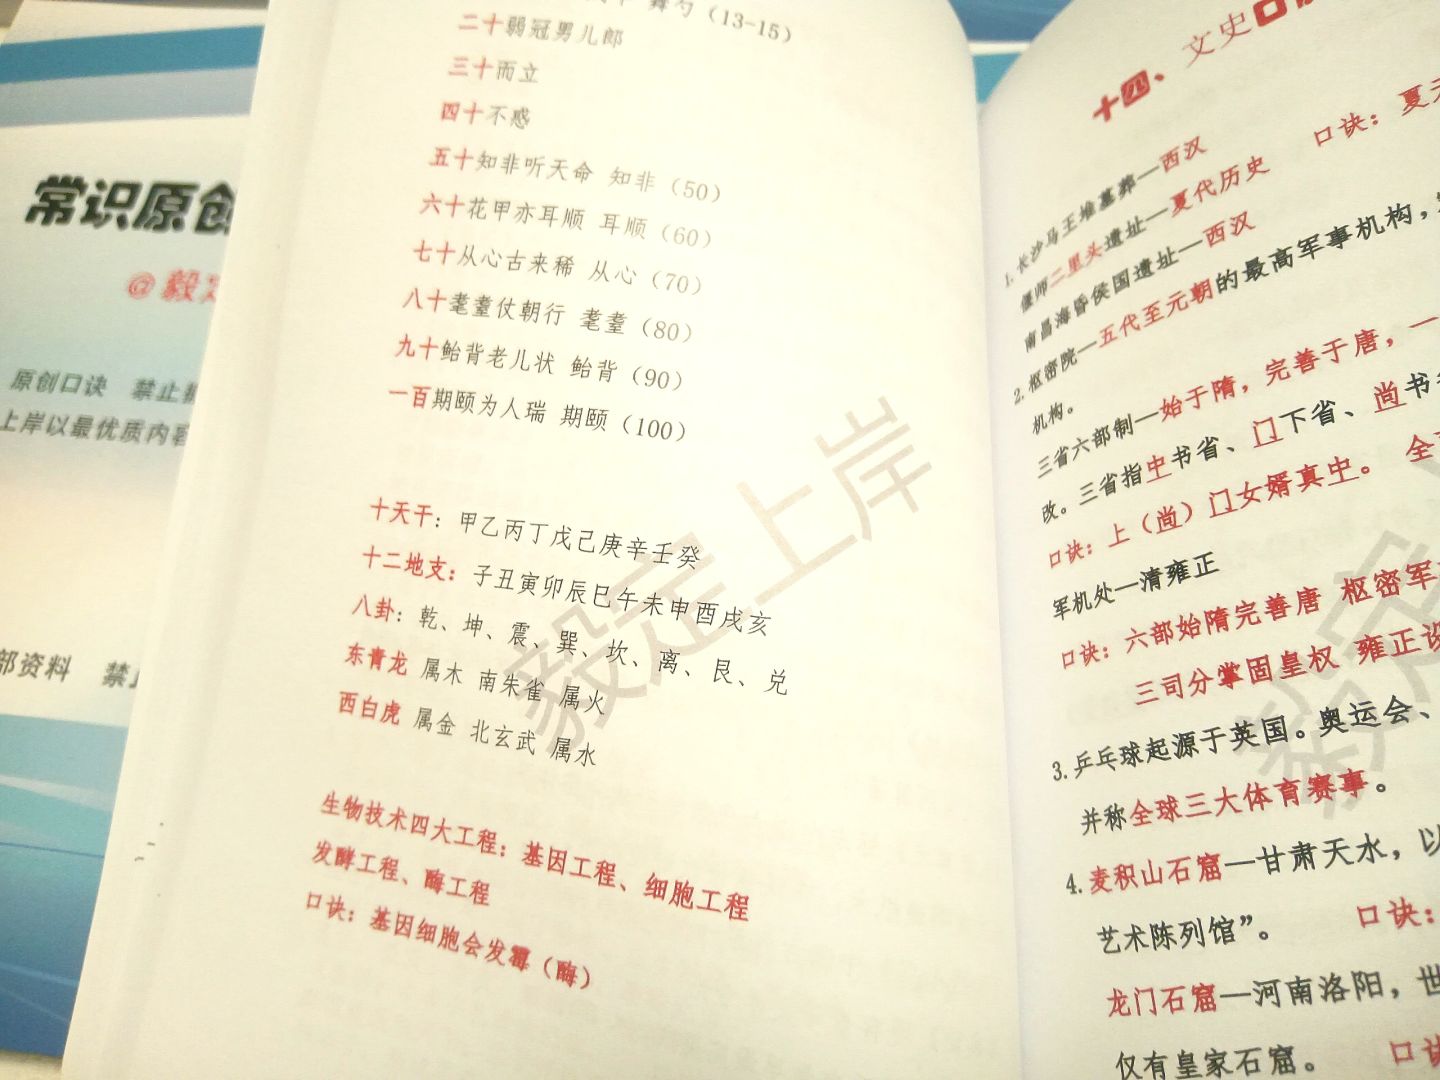 常识原创
@毅定
原创口诀 禁止
上岸以最优质内容
部资料 禁止
舞勺（13-15）
二十弱冠男儿郎
三十而立
四十不惑
五十知非听天命 知非（50）
六十花甲亦耳顺 耳顺（60）
七十从心古来稀 从心（70）
八十耄耋仗朝行 耄耋（80）
九十鲐背老儿状 鲐背（90）
一百期颐为人瑞 期颐（100）
十天干：甲乙丙丁戊己庚辛壬癸
十二地支：子丑寅卯辰巳午未申酉戌亥
八卦：乾、坤、震、巽、坎、离、艮、兑
东青龙 属木 南朱雀 属火
西白虎 属金 北玄武 属水
生物技术四大工程：基因工程、细胞工程
发酵工程、酶工程
口诀：基因细胞会发霉（酶）
毅定上岸
十四、文史口
1.长沙马王堆墓葬—西汉 口诀：夏
偃师二里头遗址—夏代历史
南昌海昏侯国遗址—西汉
2.枢密院—五代至元朝的最高军事机构，
机构。
三省六部制—始于隋，完善于唐，一
改。三省指中书省、门下省、尚书
口诀：上（尚）门女婿真中。 全
军机处—清雍正
口诀：六部始隋完善唐 枢密军
三司分掌固皇权 雍正设
3.乒乓球起源于英国。奥运会、
并称全球三大体育赛事。
4.麦积山石窟—甘肃天水，以
艺术陈列馆”。 口诀：
龙门石窟—河南洛阳，世
仅有皇家石窟。 口诀